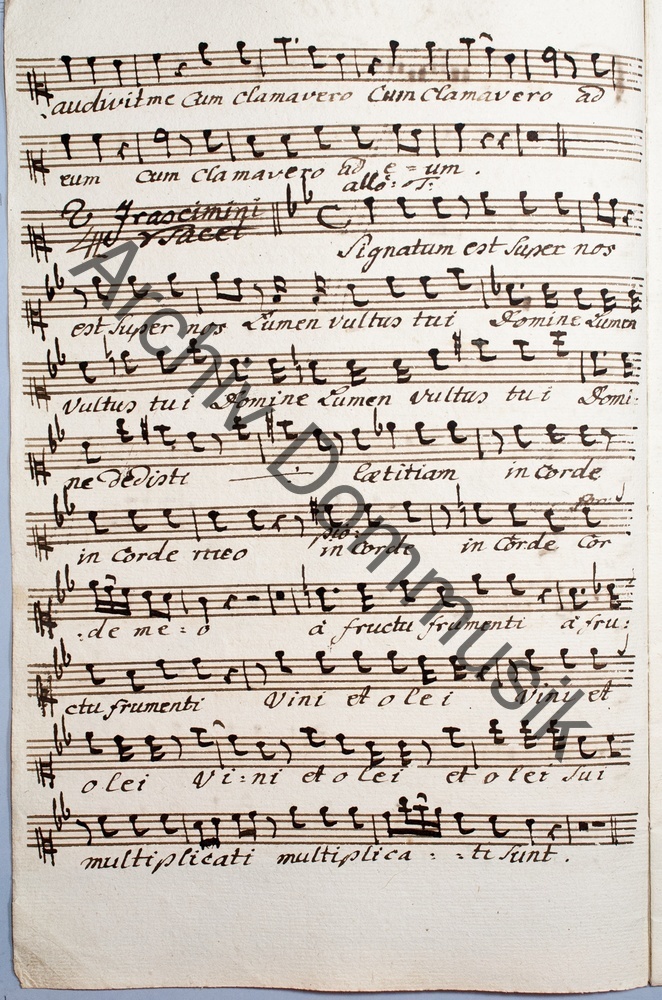 audivit me Cum Clamavero Cum Clamavero ad
eum Cum Clamavero ad e = um .
allo:
Irascimini
Tacet
Signatum est super nos
est super nos Lumen vultus tui Domine Lumen
vultus tui Domine Lumen vultus tui Domi:
ne dedisti lætitiam in corde
in Corde meo in Corde in Corde Cor
:de me : o à fructu frumenti à fru:
ctu frumenti Vini et olei Vini et
olei Vi:ni et olei et olei sui
multiplicati multiplica : :ti sunt .
Archiv Dommusik